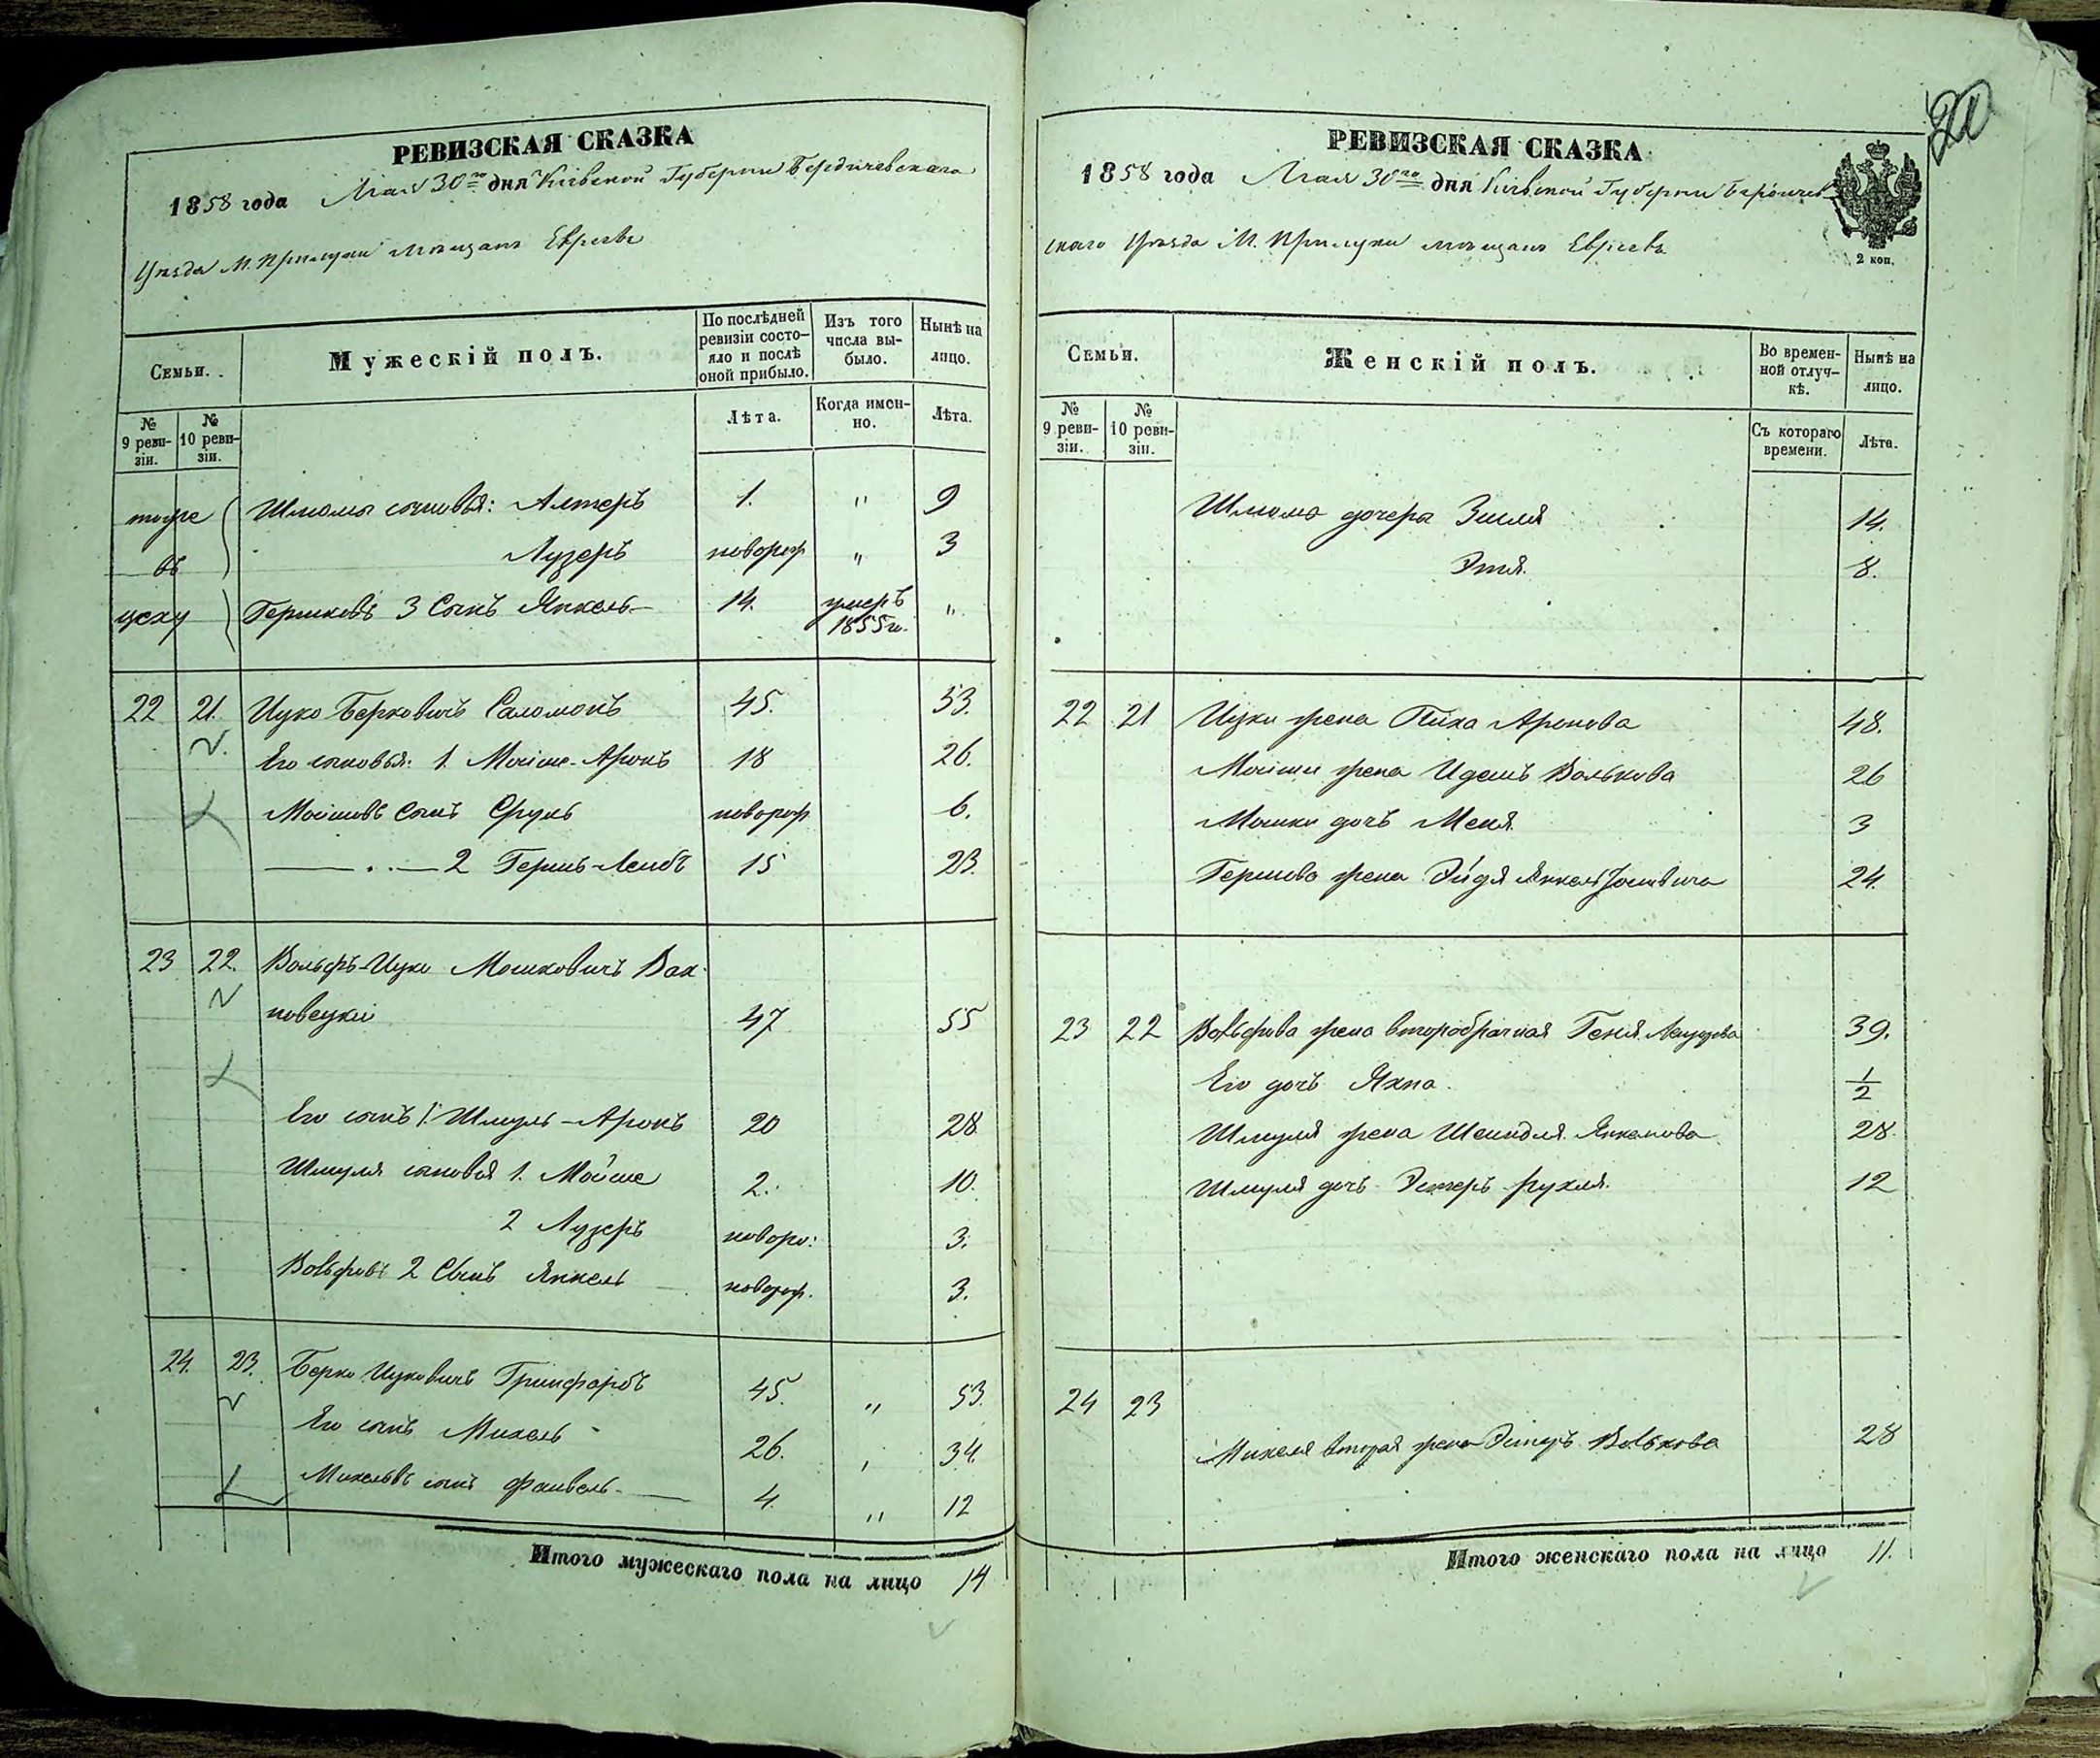 РЕВИЗСКАЯ СКАЗКА
1858 года Мая 30го дня Кіевской Губерніи Бердичевскаго
Уѣзда М. Прилуки мѣщанъ Евреевъ
Семьи.
Мужескій полъ.
По послѣдней ревизіи состояло и послѣ оной прибыло.
Изъ того числа выбыло.
Нынѣ на лицо.
№ 9 ревизіи.
№ 10 ревизіи.
Лѣта.
Когда именно.
Лѣта.
тоже Шлиомы сыновья: Алтеръ 1. " 9
въ Лузеръ новорож " 3
цеху Гершковъ 3 Сынъ Янкель 14. умеръ 1855 г. "
22 21. Ицко Берковичъ Саломонъ 45. 53.
Его сыновья: 1. Мойше-Аронъ 18 26.
Мойшовъ сынъ Сруль новорож 6.
2 Гершъ-Лейбъ 15 23.
23 22. Вольфъ-Ицко Мошковичъ Вах-
новецкій 47 55
Его сынъ 1. Шмуль-Аронъ 20 28
Шмуля сыновья 1. Мойше 2. 10.
2 Лузеръ новоро: 3.
Вольфовъ 2 Сынъ Янкель новорож. 3.
24. 23. Берко Ицковичъ Гринфарбъ 45. " 53.
Его сынъ Михель 26. " 34.
Михелевъ сынъ Файвель 4. " 12
Итого мужескаго пола на лицо 14
20
РЕВИЗСКАЯ СКАЗКА
1858 года Мая 30го дня Кіевской Губерніи Бердичев-
скаго Уѣзда М. Прилуки мѣщанъ Евреевъ
2 коп.
Семьи.
Женскій полъ.
Во временной отлучкѣ.
Нынѣ на лицо.
№ 9 ревизіи.
№ 10 ревизіи.
Съ котораго времени.
Лѣта.
Шлиома дочери Зисля 14.
Этя. 8.
22 21 Ицки жена Пиха Аронова 48.
Мойши жена Идесъ Волькова 26
Мошки дочь Меня 3
Гершова жена Эйдя 24.
23 22 Вольфова жена второбрачная Геня 39.
Его дочь Яхна. 1/2
Шмуля жена Шейндля Янкелова 28.
Шмуля дочь Эстеръ-рухля. 12
24 23
Михеля вторая жена Эстеръ Волькова 28
Итого женскаго пола на лицо 11.